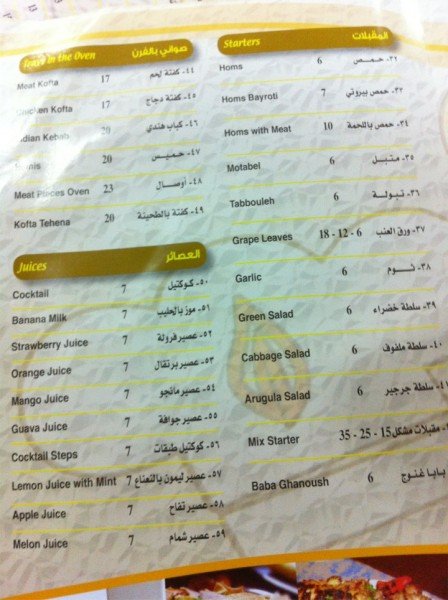 Trays in the Oven صواني بالفرن
Meat Kofta 17 ٤٤- كفتة لحم
Chicken Kofta 17 ٤٥- كفتة دجاج
Indian Kebab 20 ٤٦- كباب هندي
20 ٤٧- حميس
Meat Pieces Oven 23 ٤٨- أوصال
Kofta Tehena 20 ٤٩- كفتة بالطحينة
Juices العصائر
Cocktail 7 ٥٠- كوكتيل
Banana Milk 7 ٥١- موز بالحليب
Strawberry Juice 7 ٥٢- عصير فرولة
Orange Juice 7 ٥٣- عصير برتقال
Mango Juice 7 ٥٤- عصير مانجو
Guava Juice 7 ٥٥- عصير جوافة
Cocktail Steps 7 ٥٦- كوكتيل طبقات
Lemon Juice with Mint 7 ٥٧- عصير ليمون بالنعناع
Apple Juice 7 ٥٨- عصير تفاح
Melon Juice 7 ٥٩- عصير شمام
Starters المقبلات
Homs 6 ٣٢- حمص
Homs Bayroti 7 ٣٣- حمص بيروتي
Homs with Meat 10 ٣٤- حمص باللحمة
Motabel 6 ٣٥- متبل
Tabbouleh 6 ٣٦- تبولة
Grape Leaves 18 - 12 - 6 ٣٧- ورق العنب
Garlic 6 ٣٨- ثوم
Green Salad 6 ٣٩- سلطة خضراء
Cabbage Salad 6 ٤٠- سلطة ملفوف
Arugula Salad 6 سلطة جرجير
Mix Starter 35 - 25 - 15 مقبلات مشكل
Baba Ghanoush 6 بابا غنوج